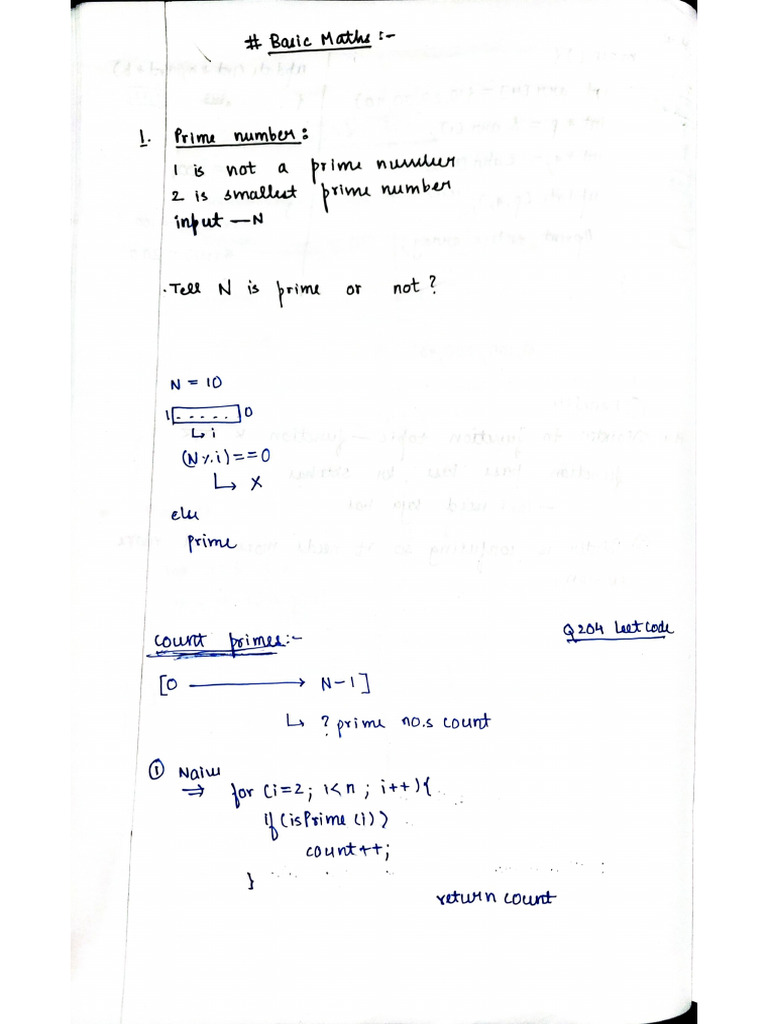 # Basic Maths :-
1. Prime number :
1 is not a prime number
2 is smallest prime number
input — N
. Tell N is prime or not ?
N = 10
1 [ . . . . . ] 0
↳ i
(N % i) == 0
↳ x
else
prime
count primes :-
Q204 Leetcode
[0 ⟶ N-1]
↳ ? prime no.s count
① Naive
⇒ for (i=2; i<n ; i++){
if (isPrime (i))
count++;
}
return count